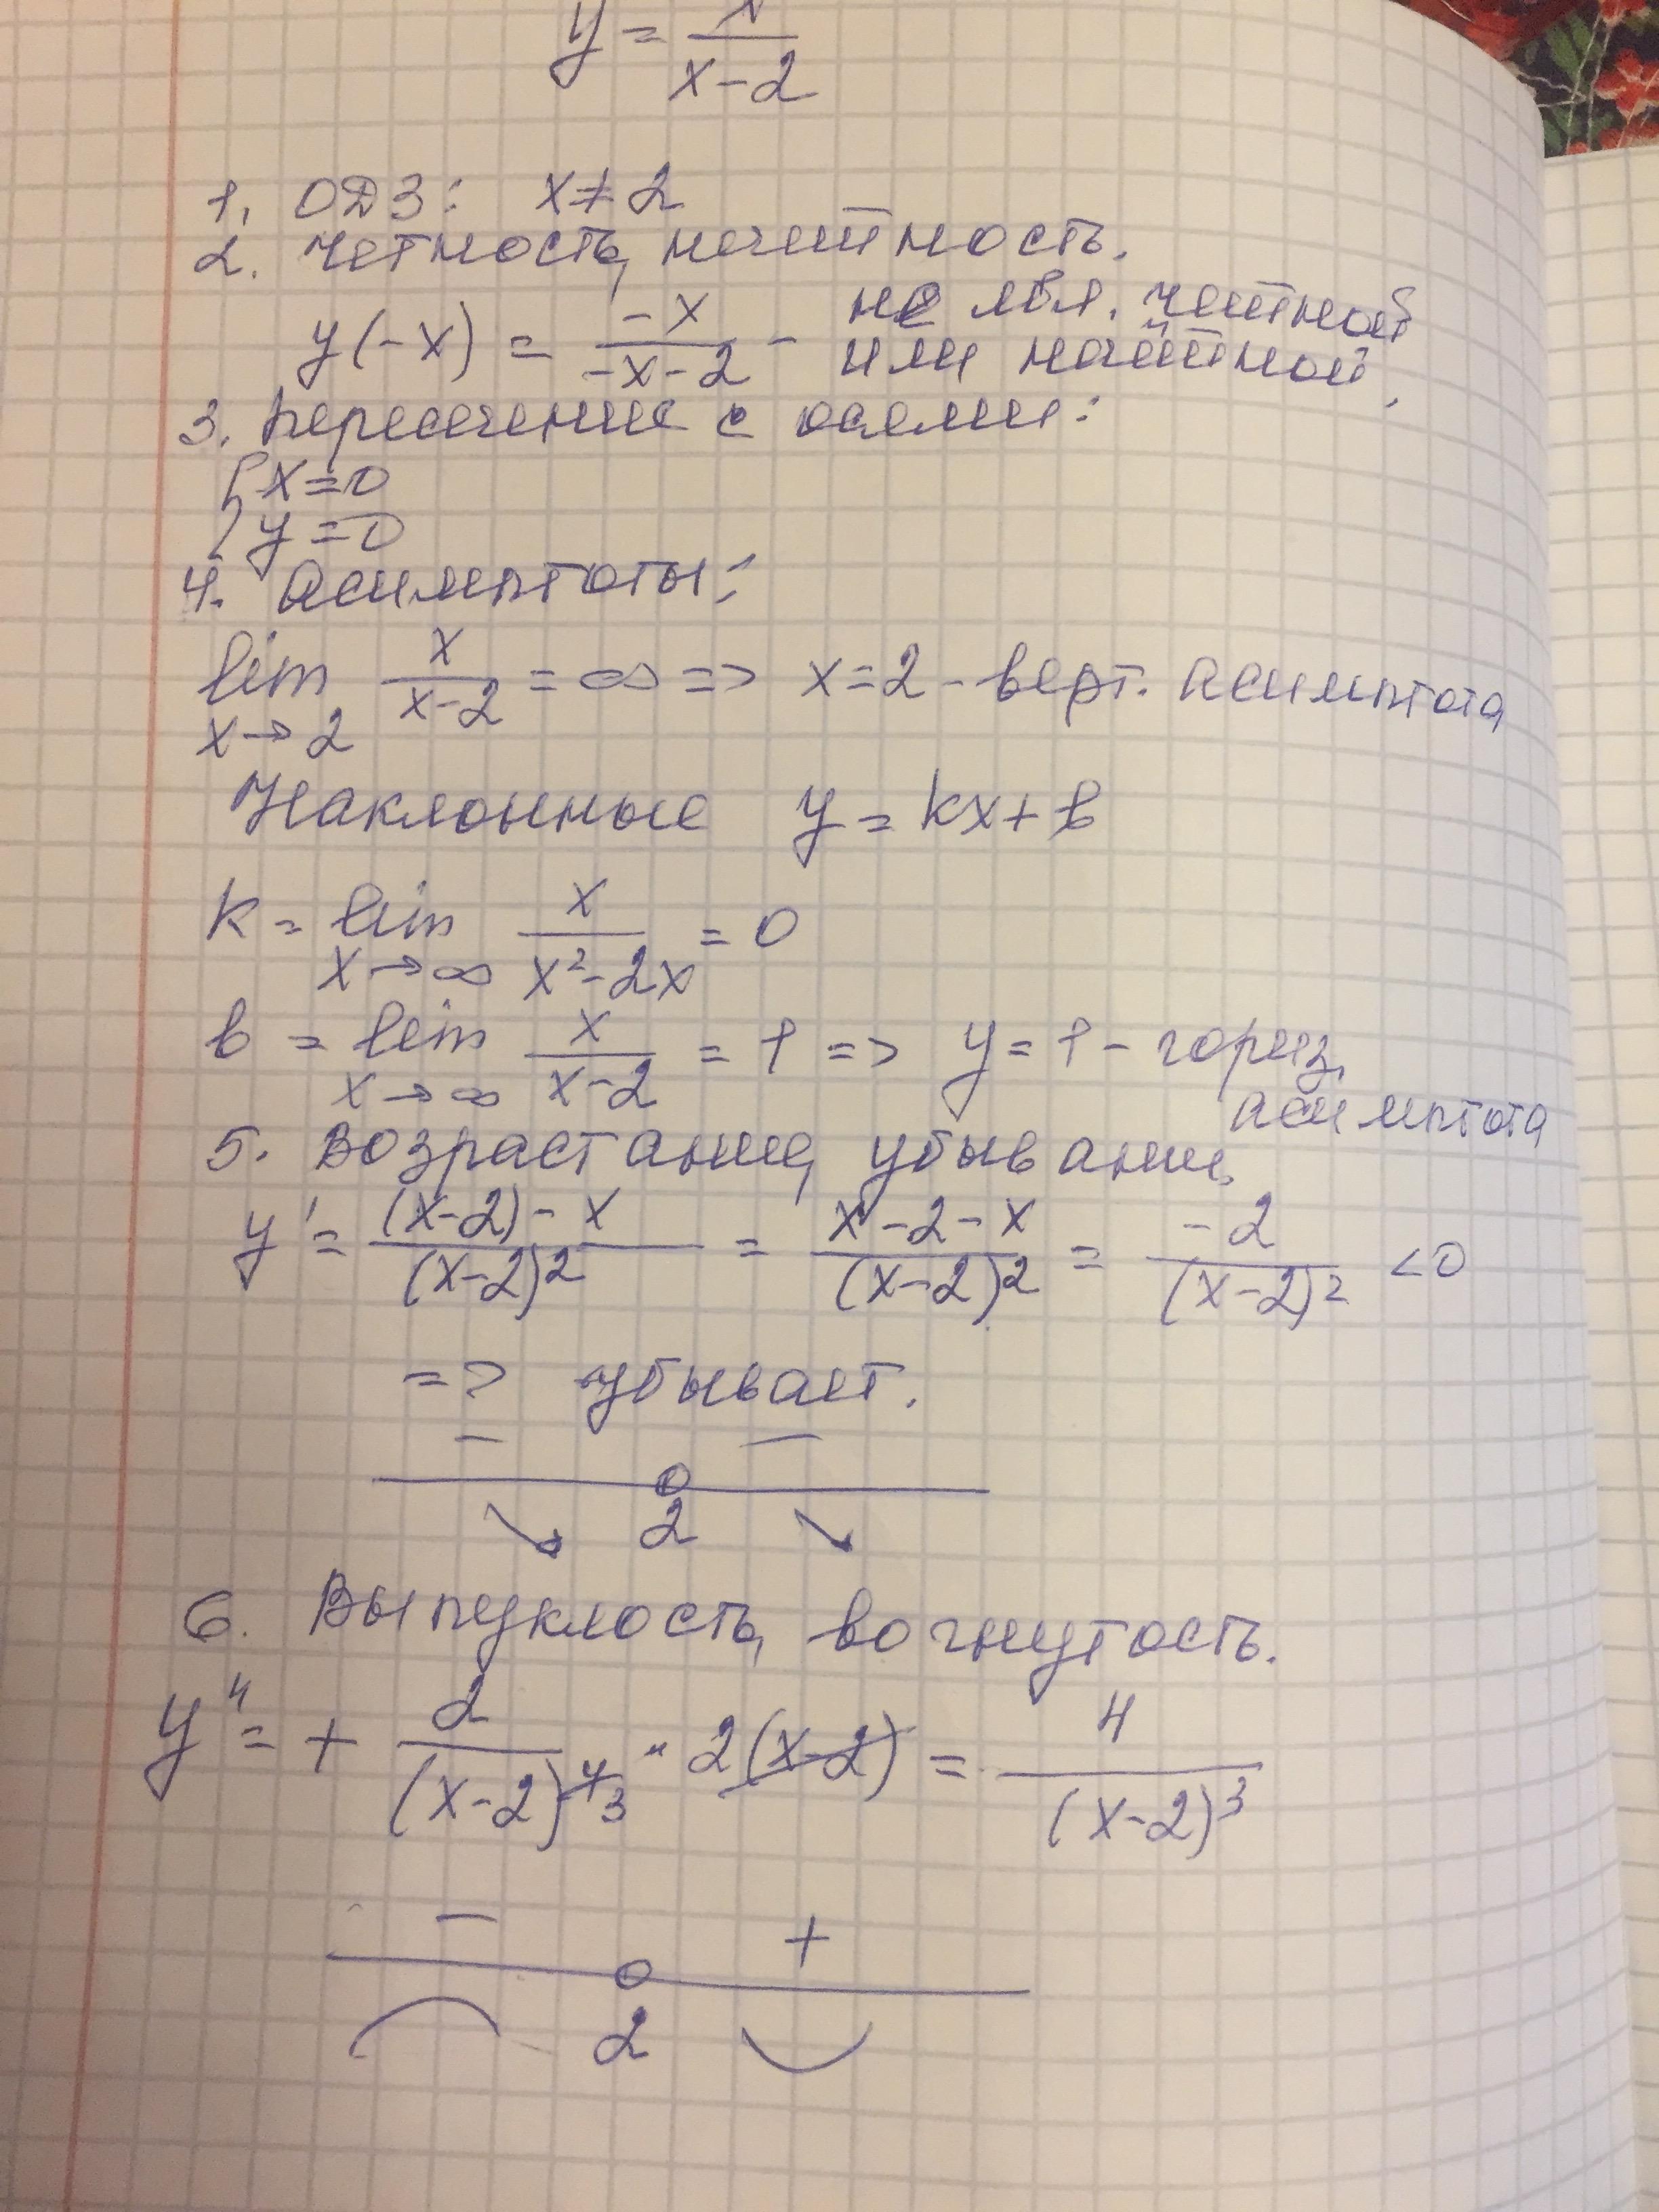 y = x / (x-2)
1. ОДЗ: x ≠ 2
2. Четность, нечетность.
y(-x) = -x / (-x-2) - не явл. четной
или нечётной.
3. Пересечение с осями:
{ x=0
y=0
4. Асимптоты:
lim x→2 x / (x-2) = ∞ => x=2 - верт. асимптота
Наклонные y = kx + b
k = lim x→∞ x / (x²-2x) = 0
b = lim x→∞ x / (x-2) = 1 => y = 1 - гориз.
асимптота
5. Возрастание, убывание.
y' = ((x-2) - x) / (x-2)² = (x-2-x) / (x-2)² = -2 / (x-2)² < 0
=> убывает.
- -
2
6. Выпуклость, вогнутость.
y'' = + 2 / (x-2)⁴ ³ · 2(x-2) = 4 / (x-2)³
- +
2